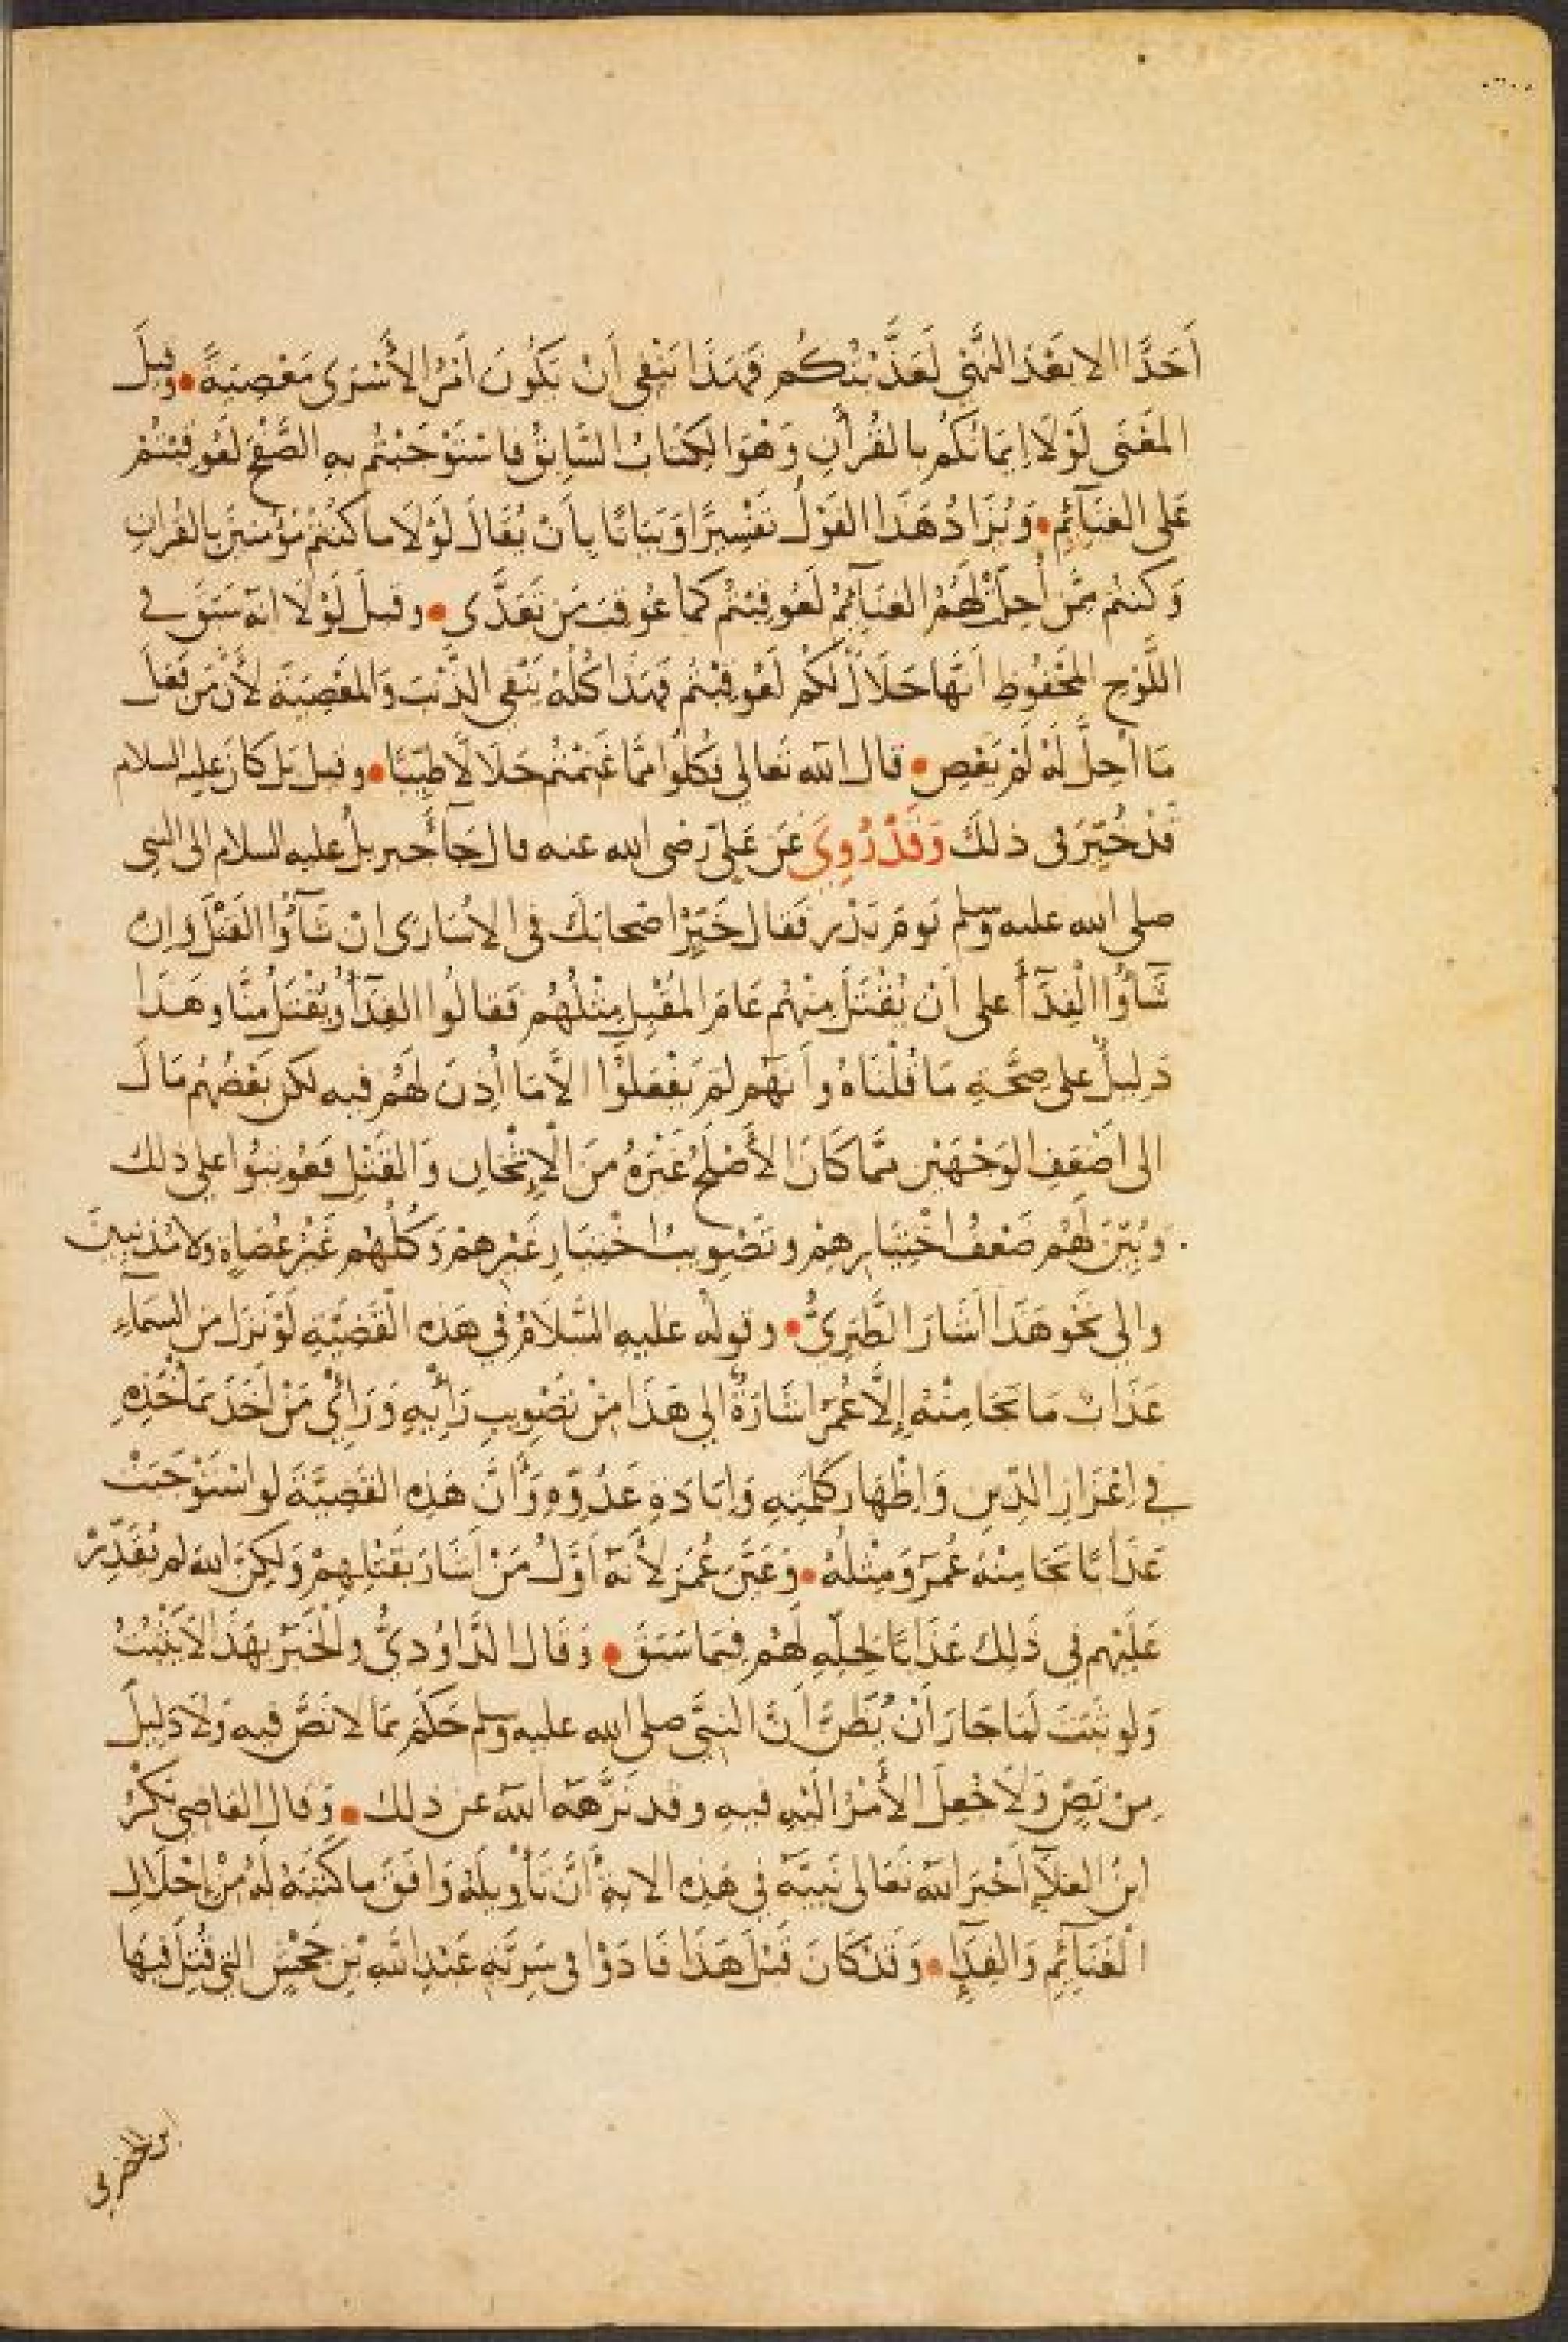 أَحَدًا الا بَعْدَ النَّهْيِ لَعَذَّبْتُكُم فَهَذَا يَنْفِي أَنْ يَكُونَ أَمْرُ الأَسْرَى مَعْصِيَةً • وقيلَ
المَعْنَى لَوْلَا إيمَانُكُم بالقُرآنِ وَهْوَ الكِتَابُ السَّابِقُ فاسْتَوْجَبْتُم بهِ الصَّفْحَ لَعُوقِبْتُمْ
عَلى الغَنَآئِمِ • وَيُزَادُ هَذَا القَوْلُ تَفْسِيرًا وَبَيَانًا بِأَنْ يُقَالَ لَوْلَا ما كُنْتُمْ مُؤْمِنِينَ بالقُرانِ
وَكنتُم مِمَّن أُحِلَّتْ لَهُمُ الغَنَآئِمُ لَعُوقِبْتُم كما عُوقِبَ مَن تَعَدَّى • وقيلَ لَوْلَا انَّه سَبَقَ في
اللَّوْحِ المَحْفُوظِ أَنَّهَا حَلَالٌ لَكُم لَعُوقِبْتُم فَهَذَا كُلُّهُ يَنْفِي الذَّنْبَ وَالمَعْصِيَةَ لأَنَّ مَن فَعَلَ
مَا أُحِلَّ لَهُ لَمْ يَعْصِ • قال الله تَعالى فَكُلُوا مِمَّا غَنِمْتُم حَلَالًا طَيِّبًا • وقيل بَل كانَ عليه السلام
قَدْ خُيِّرَ في ذلكَ وَقَدْ رُوِيَ عَن عَلِيٍّ رضى الله عنه قال جَآءَ جبريلُ عليه السلام الى النبي
صلى الله عليه وسلم يَومَ بَدْرٍ فَقال خَيِّرْ أَصْحابَكَ في الأُسَارَى انْ شَآؤُا القَتْلَ وإنْ
شَآؤُا الْفِدَآءَ على أَن يُقْتَلَ مِنْهُم عَامَ المُقْبِلِ مِثْلُهُم فَقالُوا الفِدَآءُ ويُقْتَلُ مِنَّا وَهَذَا
دَليلٌ على صِحَّةِ مَا قُلْنَاهُ وأَنهُم لَمْ يَفْعَلُوا الَّا مَا أُذِنَ لَهُم فيه لكن بَعْضُهُم مَالَ
الى أَضْعَفِ الوَجْهَيْنِ مِمَّا كَانَ الأَصْلَحُ غَيْرَهُ مِنَ الْإِثْخَانِ وَالقَتْلِ فَعُوتِبُوا على ذلك
وَبُيِّنَ لَهُم ضَعْفُ اخْتِيَارِهِمْ وتَصْوِيبُ اخْتِيَارِ غَيْرِهِمْ وَكُلُّهُم غَيْرُ عُصَاةٍ ولا مُذنبينَ
والى نَحْوِ هَذَا أَشَارَ الطَّبَرِيُّ • وقولُه عليهِ السَّلَامُ في هَذِهِ الْقَضِيَّةِ لَوْ نَزَلَ مِنَ السمَآءِ
عَذَابٌ مَا نَجَا مِنْهُ إِلَّا عُمَرُ إشَارَةٌ إلى هَذَا مِنْ تَصْوِيبِ رَأْيِهِ وَرَأْيِ مَنْ أَخَذَ بمَأْخَذِهِ
في إعْزَازِ الدِّينِ وَإِظْهَارِ كَلِمَتِهِ وَإبَادَةِ عَدُوِّهِ وَأَنَّ هَذِهِ القَضِيَّةَ لو اسْتَوْجَبَتْ
عَذَابًا نَجَا مِنْهُ عُمَرُ وَمِثْلُهُ • وَعَيَّنَ عُمَرَ لأَنَّهُ أَوَّلُ مَنْ أَشَارَ بقَتْلِهِمْ وَلكِنَّ اللهَ لم يُقَدِّرْ
عَلَيْهِم في ذَلِكَ عَذَابًا لِحِلِّهِ لَهُم فيمَا سَبَقَ • وَقال الدَّاوُديُّ والخَبَرُ بهَذَا لَا يَثْبُتُ
وَلو ثَبَتَ لَمَا جَازَ أَن يُظَنَّ أَنَّ النبيَّ صلى الله عليه وسلم حَكَمَ بمَا لا نَصَّ فيه وَلَا دَلِيلَ
مِن نَصٍّ وَلَا جُعِلَ الأَمْرُ الَيْهِ فيهِ وقد نَزَّهَهُ اللهُ عن ذلك • وَقال القاضي بَكْرُ
ابنُ العَلَآءِ أَخْبَرَ اللهُ تَعَالى نَبِيَّهُ في هَذِه الايةِ أَنَّ تَأْوِيلَهُ وَافَقَ ما كَتَبَهُ لَهُ مِنْ إِحْلَالِ
الْغَنَآئِمِ وَالفِدَآءِ • وَقَدْ كَانَ قَبْلَ هَذَا فَادَوْا في سَرِيَّةِ عَبْدِ اللهِ بْنِ جَحْشٍ التي قُتِلَ فيهَا
ابن الحضرمي